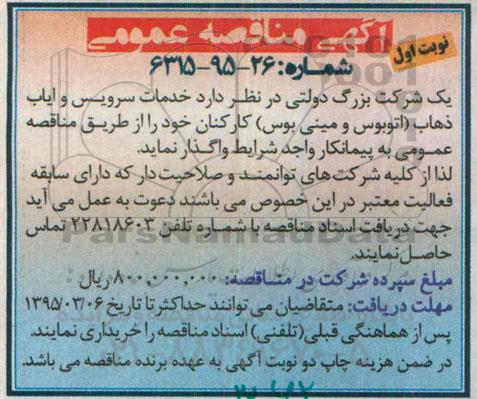 آگهی مناقصه عمومی
نوبت اول
شماره: ۲۶-۹۵-۶۳۱۵
یک شرکت بزرگ دولتی در نظر دارد خدمات سرویس و ایاب
ذهاب (اتوبوس و مینی بوس) کارکنان خود را از طریق مناقصه
عمومی به پیمانکار واجد شرایط واگذار نماید.
لذا از کلیه شرکت های توانمند و صلاحیت دار که دارای سابقه
فعالیت معتبر در این خصوص می باشند دعوت به عمل می آید
جهت دریافت اسناد مناقصه با شماره تلفن ۲۲۸۱۸۶۰۳ تماس
حاصل نمایند.
مبلغ سپرده شرکت در مناقصه: ۸۰۰,۰۰۰,۰۰۰ ریال
مهلت دریافت: متقاضیان می توانند حداکثر تا تاریخ ۱۳۹۵/۰۳/۰۶
پس از هماهنگی قبلی (تلفنی) اسناد مناقصه را خریداری نمایند.
در ضمن هزینه چاپ دو نوبت آگهی به عهده برنده مناقصه می باشد.
ParsNamadData